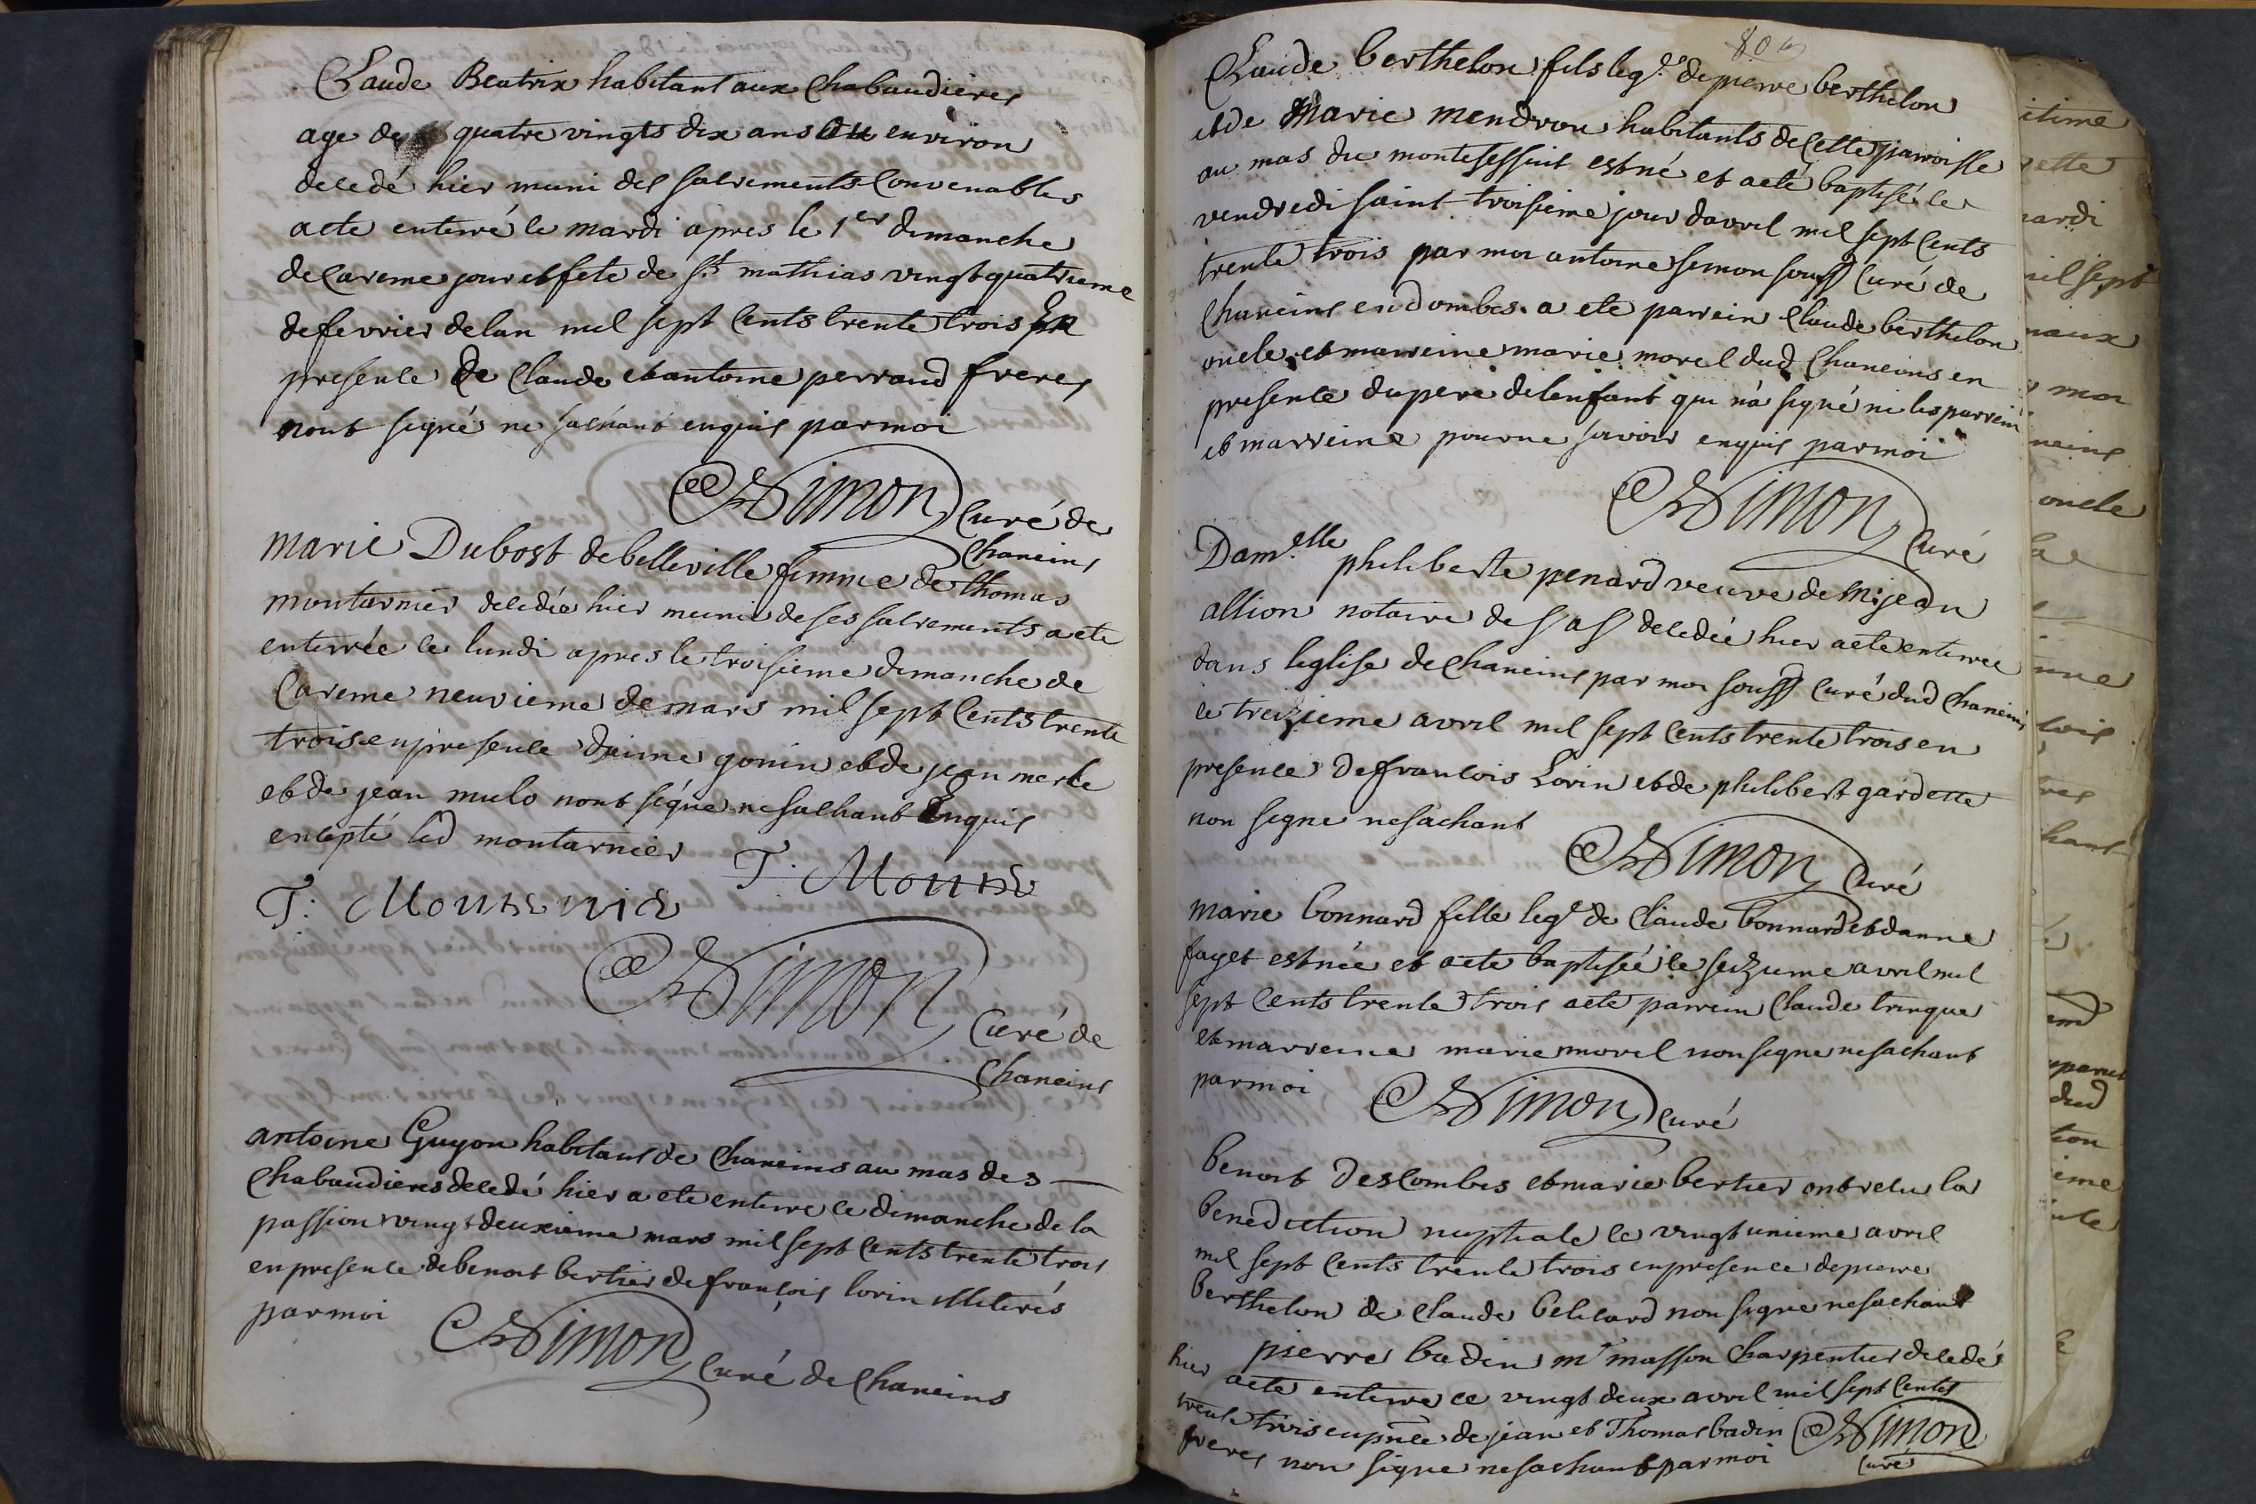 Claude Beatrix habitant aux Chabaudieres
age de quatre vingts dix ans ou environ
decedé hier muni des sacrements convenables
a ete enterré le mardi apres le 1er dimanche
de Careme jour et fete de st mathias vingt quatrieme
de fevrier de lan mil sept cents trente trois En
presence de Claude et antoine perraud freres
nont signés ne sachant enquis par moi
Simon Curé de
Chaneins
Marie Dubost de belleville femme de thomas
montarnier decedée hier munie de ses sacrements a ete
enterrée le lundi apres le troisieme dimanche de
Careme neuvieme de mars mil sept cents trente
trois en presence daime gonin et de jean merle
et de jean mulo nont signe ne sachant Enquis
excepté led montarnier
T: Mon
T: Montarnie
Simon
Curé de
Chaneins
antoine Guyon habitant de Chaneins au mas des
Chabaudieres decedé hier a ete enterre le dimanche de la
passion vingt deuxieme mars mil sept cents trente trois
en presence de benoit bertier de françois lorin illiterés
par moi
Simon
Curé de Chaneins
80
Claude berthelon fils leg.e de pierre berthelon
et de Marie mendron habitants de cette parroisse
au mas du montesssuit est né et a eté baptisé le
vendredi saint troisieme jour davril mil sept cents
trente trois par moi antoine simon souss Curé de
Chaneins en dombes. a ete parrein Claude berthelon
oncle et marreine marie morel dud Chaneins en
presence du pere de lenfant qui nà signé ni les parrein
et marreine pour ne savoir enquis par moi
Simon
Curé
Dam.elle philiberte penard veuve de M: jean
allion notaire de S A S decedée hier a ete enterrée
dans leglise de Chaneins par moi souss Curé dud Chaneins
le treizieme avril mil sept cents trente trois en
presence de francois Lorin et de philibert gardette
non signe ne sachant
Simon Curé
marie bonnard fille leg.e de Claude bonnard et danne
fayet est née et a ete baptisée le seizieme avril mil
sept cents trente trois a ete parrein Claude trinque
et marreine marie morel non signe ne sachant
par moi
Simon Curé
benoit Descombes et marie bertier ont recu la
benediction nuptiale le vingt unieme avril
mil sept cents trente trois en presence de pierre
berthelon de Claude belicard non signe ne sachant
pierre badin mr masson Charpentier decedé
hier a ete enterre le vingt deux avril mil sept cents
trente trois en pnce de jean et Thomas badin Simon
freres non signe ne sachant par moi Curé